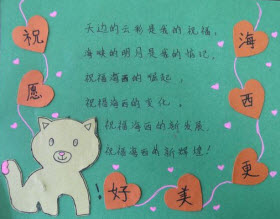 祝愿海西更美好!
天边的云彩是我的祝福,
海峡的明月是我的惦记,
祝福海西的崛起,
祝福海西的变化,
祝福海西的新发展,
祝福海西的新辉煌!